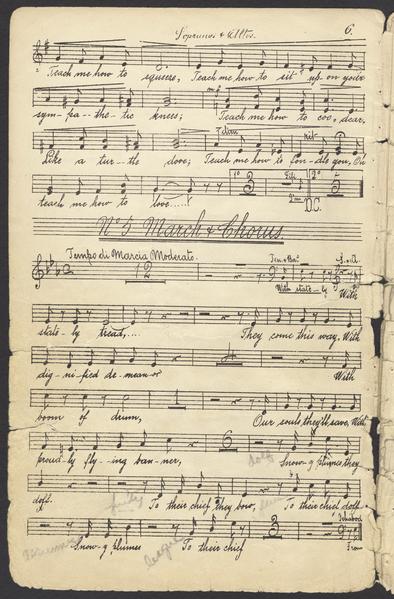 Sopranos & Altos. 6.
Teach me how to squeeze, Teach me how to sit up on your
m f
sym-pa-the-tic knees; Teach me how to coo, dear,
f dim rit
Like a tur-tle dove; Teach me how to fon-dle you, Oh
1º 3 2º 3
teach me how to love....! D.C.
Nº 5 March & Chorus.
Tempo di Marcia Moderato.
12 With state-ly With
state-ly tread,... They come this way, With
dig-ni-fied de-mean-or With
boom of drum, Our souls they'll save, With
6
proud-ly fly-ing ban-ner, Snow-y plumes they
doff. To their chief they bow, To their chief doff
3
Snow-y plumes To their chief From